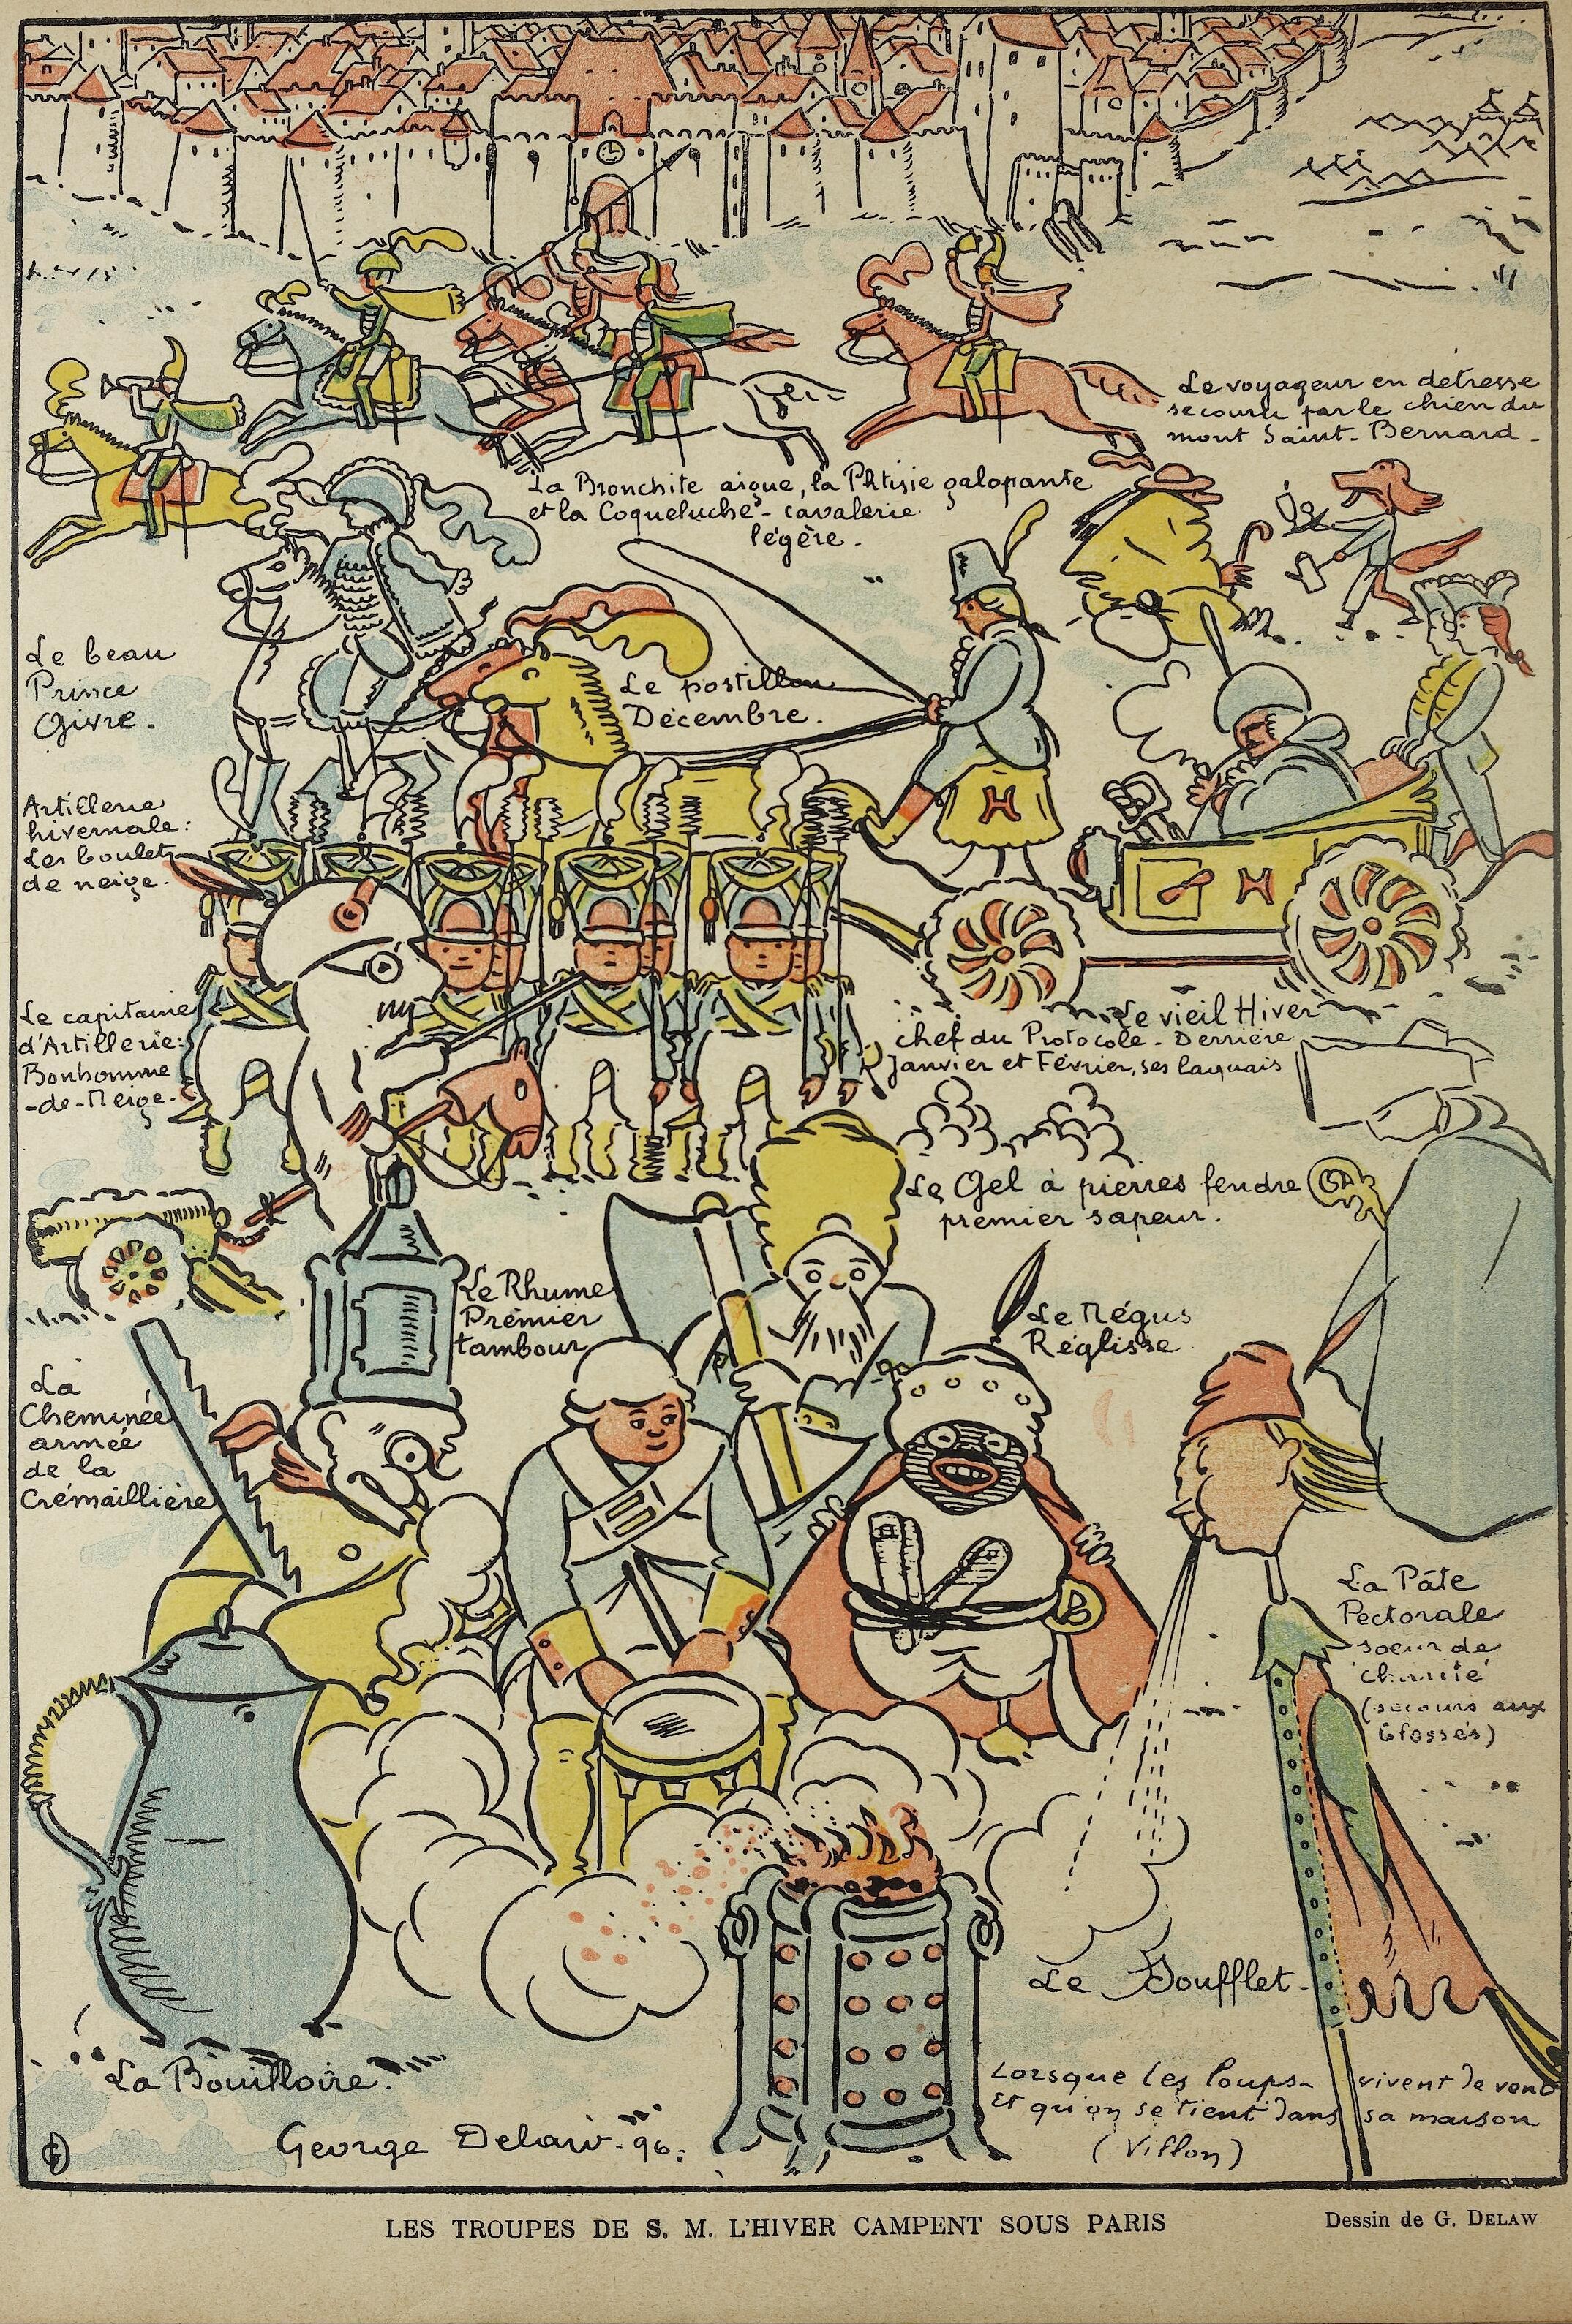 Le voyageur en détresse
secouru par le chien du
mont Saint-Bernard-
La Bronchite aigue, la Phtisie galopante
et la Coqueluche- cavalerie
légère.
Le beau
Prince
Givre.
Le postillon
Décembre.
Artillerie
hivernale:
Les boulets
de neige.
Le capitaine
d'Artillerie:
Bonhomme
-de-Neige.
Le vieil Hiver
chef du Protocole- Derrière
Janvier et Février, ses laquais
H
H
Le Gel à pierres fendre
premier sapeur.
Le Rhume
Premier
tambour
Le Négus
Réglisse
La
Cheminée
armée
de la
Crémaillière
La Pâte
Pectorale
soeur de
charité
(secours aux
blessés)
Le Soufflet-
La Bouilloire.
Lorsque les loups- vivent de vent
Et qu'on se tient dans sa maison
(Villon)
George Delaw-96.
LES TROUPES DE S. M. L'HIVER CAMPENT SOUS PARIS
Dessin de G. DELAW